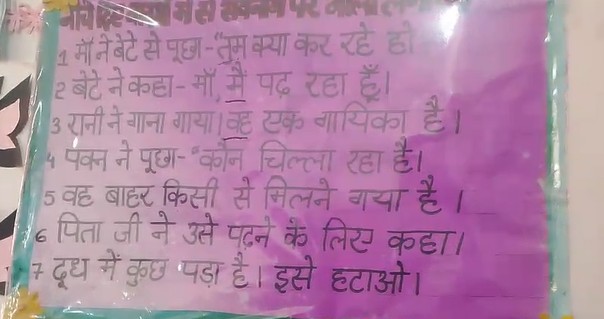 नीचे दिए वाक्यों में से सर्वनाम पर गोला लगाओ
1 माँ ने बेटे से पूछा - "तुम क्या कर रहे हो
2 बेटे ने कहा - माँ, मैं पढ़ रहा हूँ।
3 रानी ने गाना गाया। वह एक गायिका है।
4 पवन ने पूछा - "कौन चिल्ला रहा है।
5 वह बाहर किसी से मिलने गया है।
6 पिता जी ने उसे पढ़ने के लिए कहा।
7 दूध में कुछ पड़ा है। इसे हटाओ।